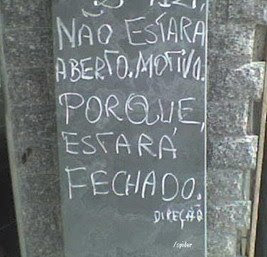 NÃO ESTARA
ABERTO. MOTIVO.
PORQUE,
ESTARÁ
FECHADO.
DIREÇÃO